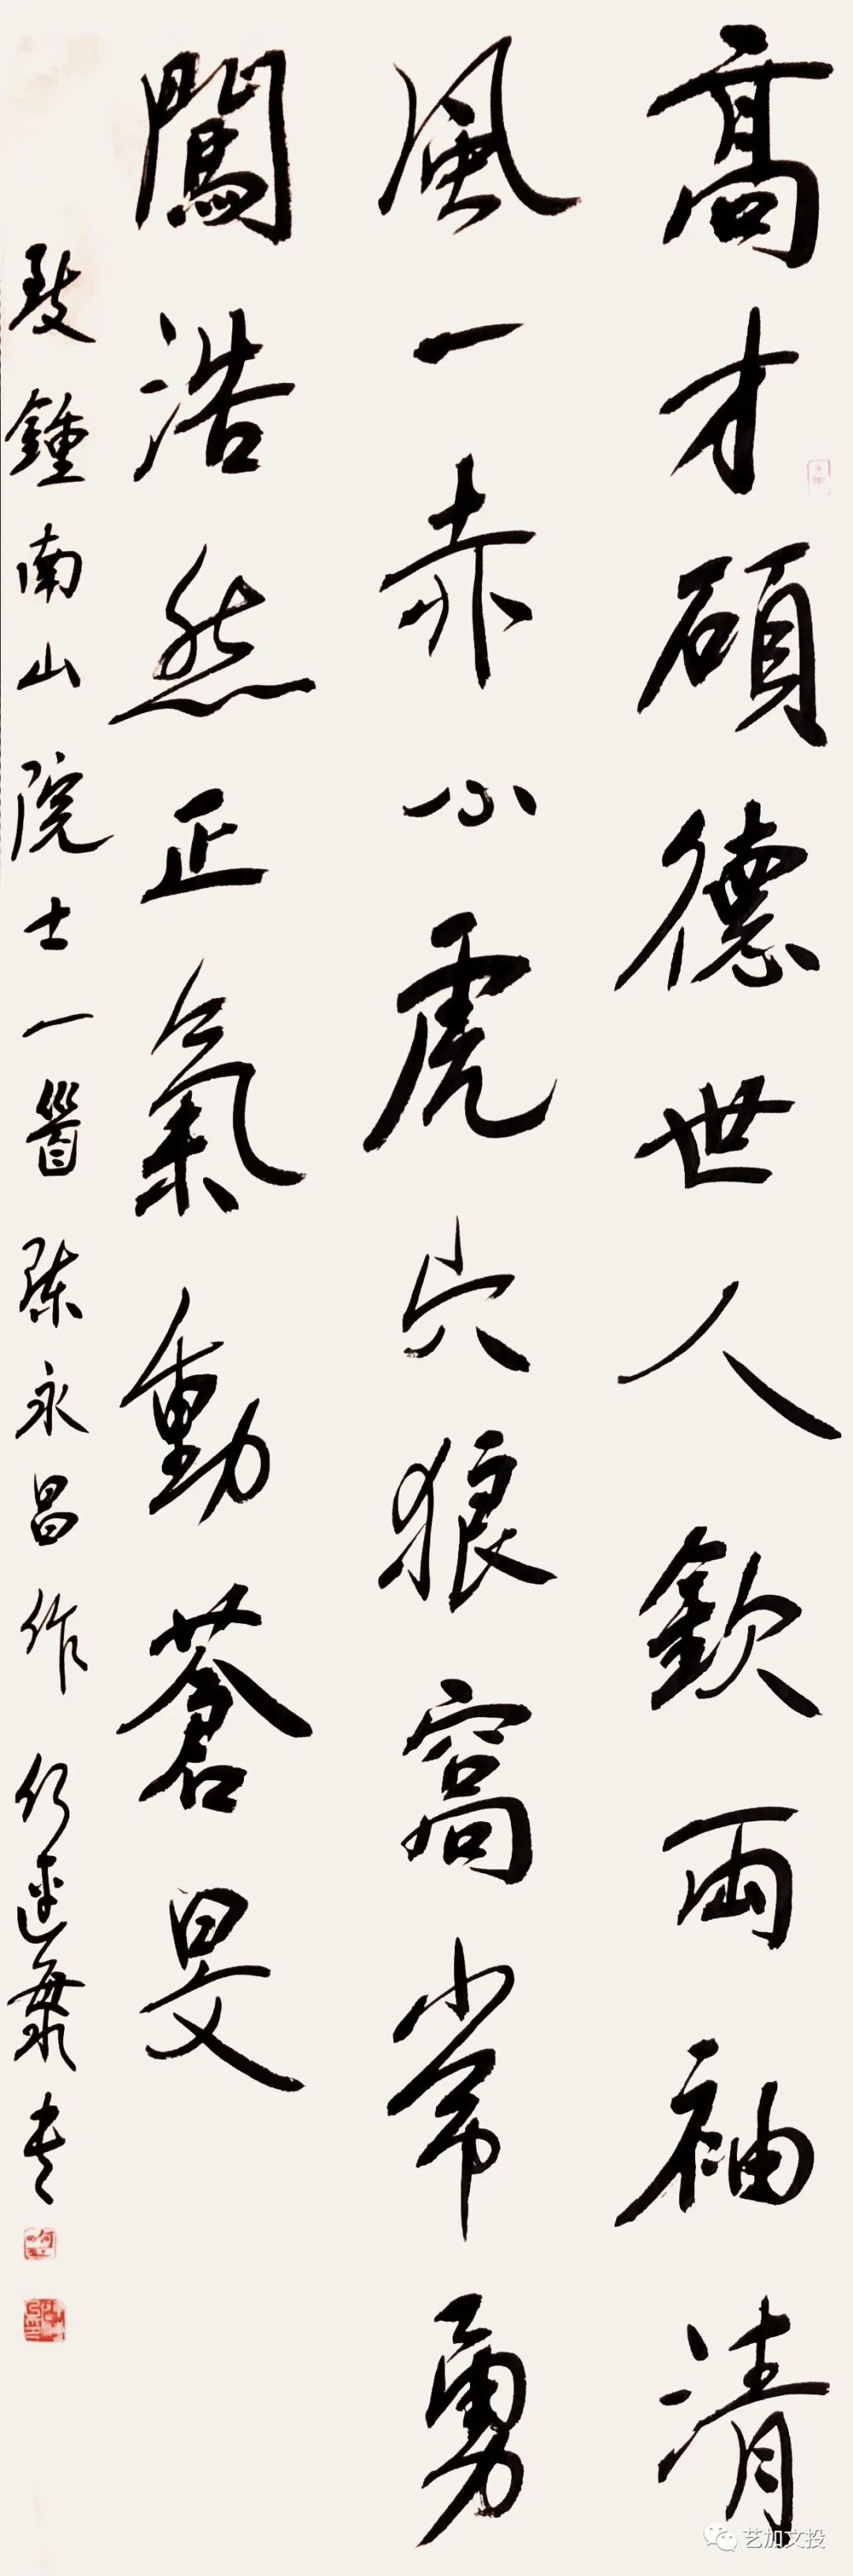 高才碩德世人欽兩袖清
風一赤心虎穴狼窩常勇
闖浩然正氣動蒼旻
致鍾南山院士一首陳永昌作書
艺加文投